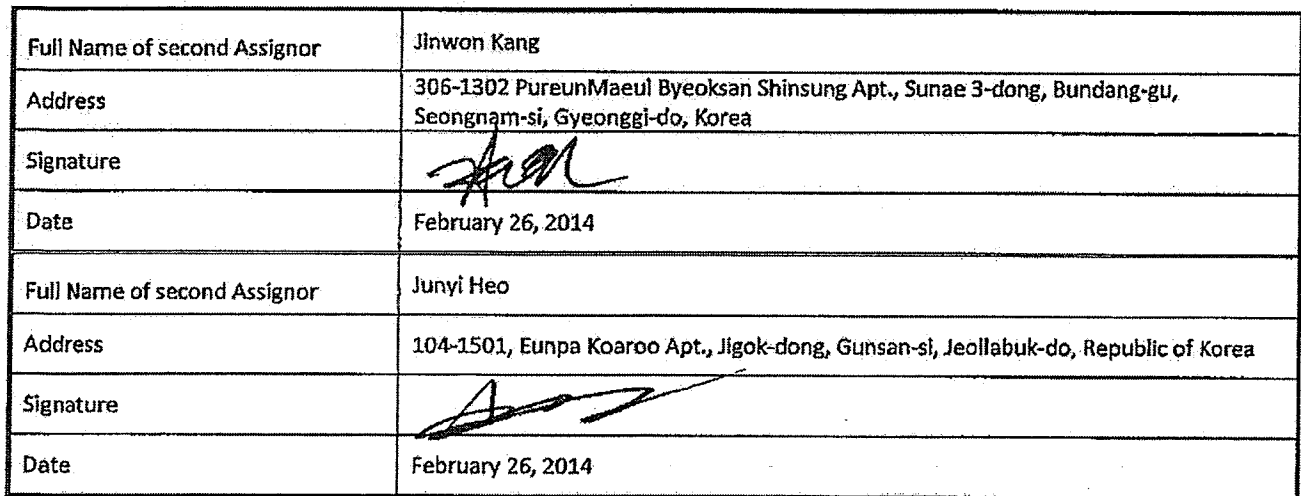 Full Name of second Assignor
Jinwon Kang
Address
306-1302 PureunMaeul Byeoksan Shinsung Apt., Sunae 3-dong, Bundang-gu,
Seongnam-si, Gyeonggi-do, Korea
Signature
Date
February 26, 2014
Full Name of second Assignor
Junyi Heo
Address
104-1501, Eunpa Koaroo Apt., Jigok-dong, Gunsan-si, Jeollabuk-do, Republic of Korea
Signature
Date
February 26, 2014